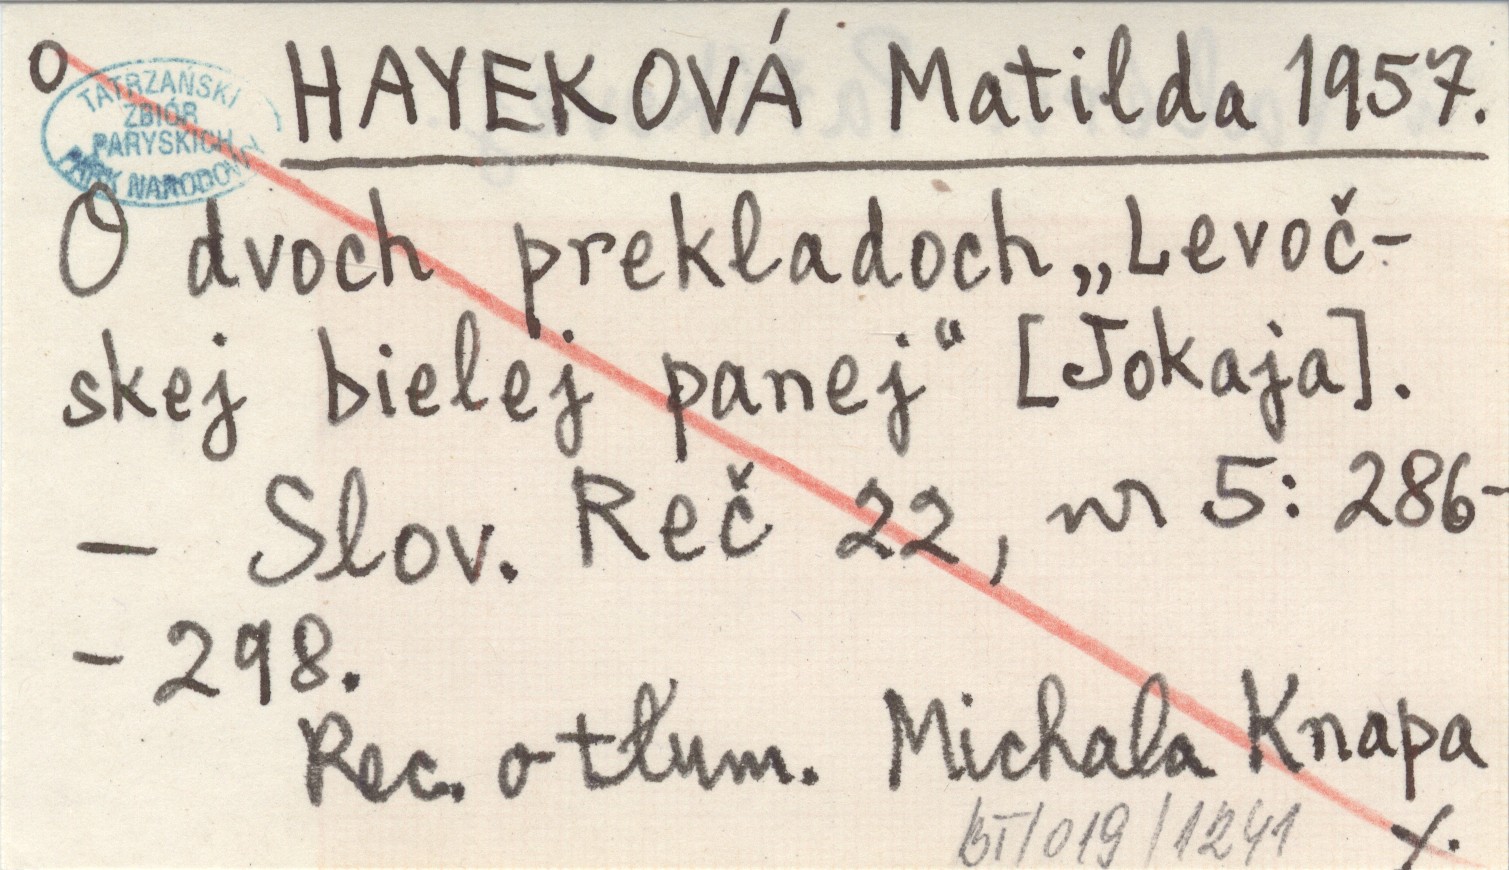 o
TATRZAŃSKI
ZBIÓR
PARYSKICH
PARK NARODOWY
HAYEKOVÁ Matilda 1957.
O dvoch prekladoch „Levoč-
skej bielej panej“ [Jokaja].
— Slov. Reč 22, nr 5: 286-
- 298.
Rec. o tłum. Michala Knapa
BT/019/1241